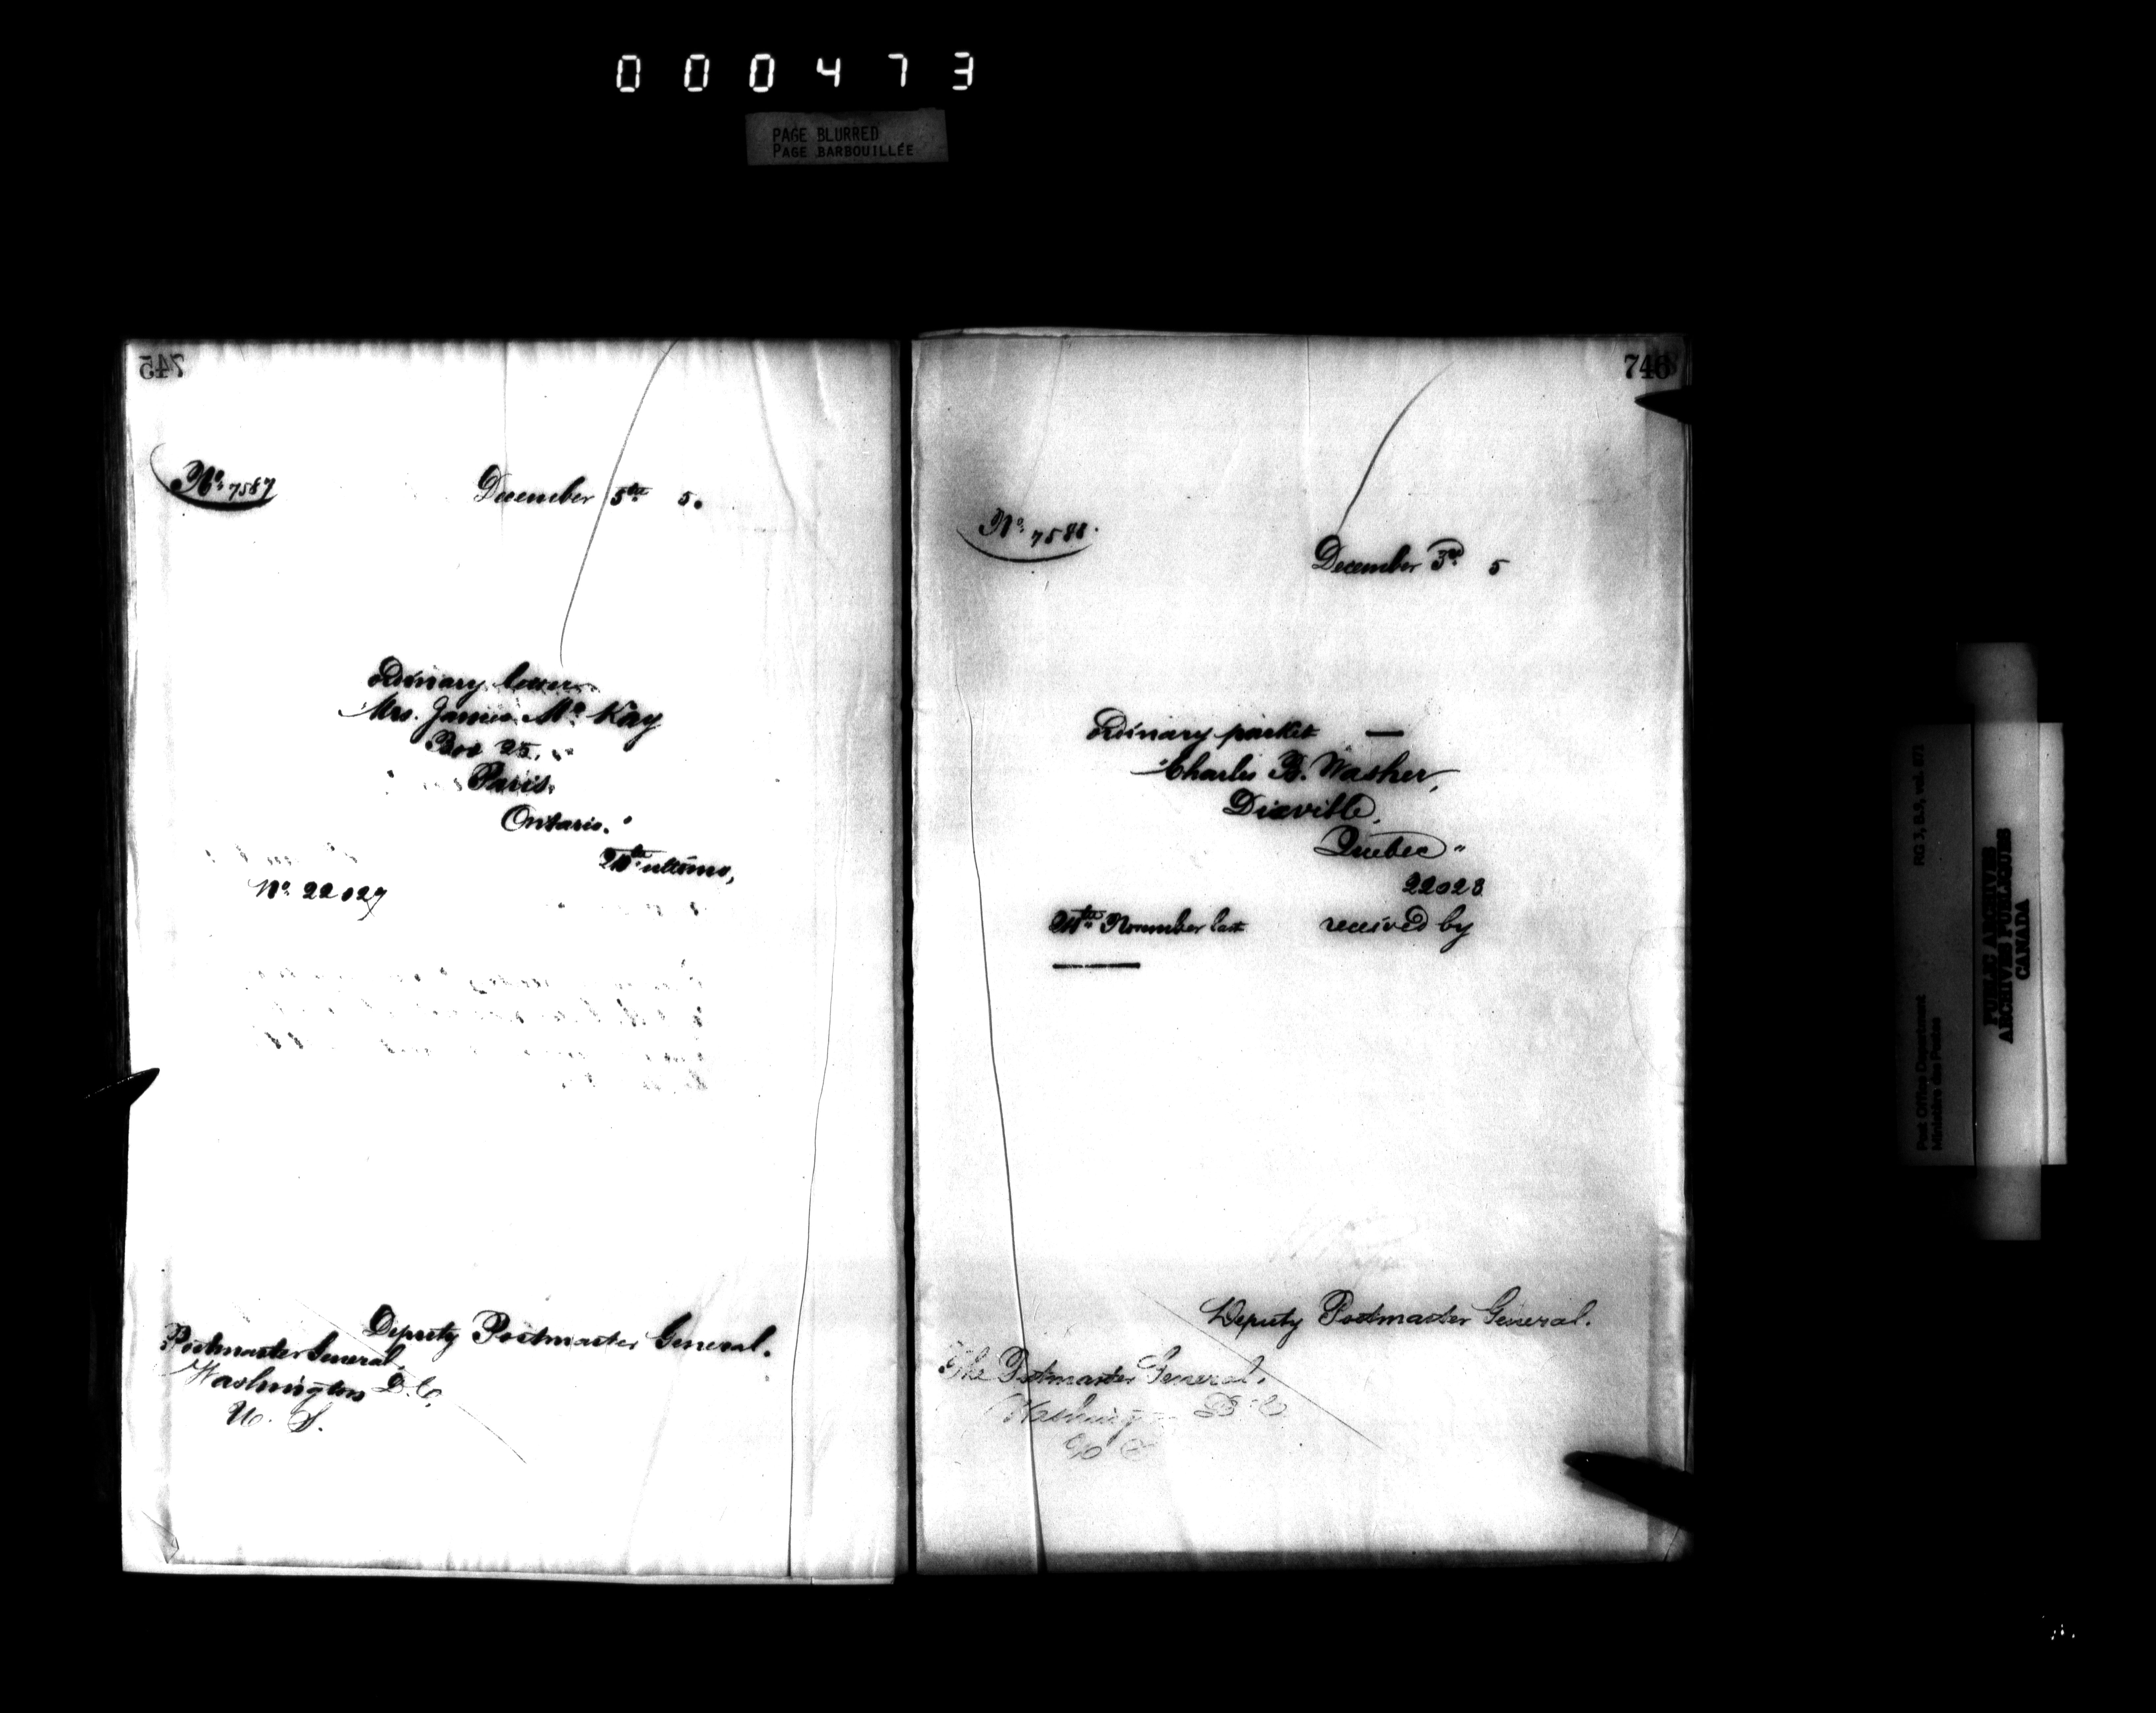 000473
PAGE BLURRED
PAGE BARBOUILLÉE
745
No. 7587
December 5th 5.
Ordinary letter
Mrs. James Mc Kay
Box 25.
Paris.
Ontario."
ultimo,
No. 22027
Deputy Postmaster General.
Postmaster General
Washington D.C.
U. S.
746
No. 7588.
December 3rd 5
Ordinary packet —
"Charles B. Washer,
Dixville,
Quebec"
22028
November last received by
Deputy Postmaster General.
The Postmaster General.
Washington D.C.
Post Office Department RG 3, B.9, vol. 671
Ministère des Postes
PUBLIC ARCHIVES
ARCHIVES PUBLIQUES
CANADA